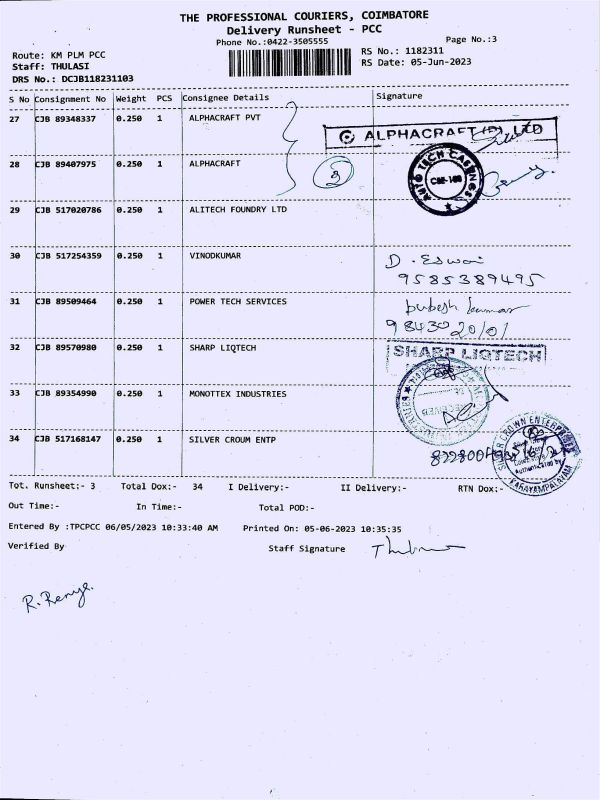 THE PROFESSIONAL COURIERS, COIMBATORE
Delivery Runsheet - PCC
Phone No.:0422-3505555
Page No.:3
Route: KM PLM PCC
RS No.: 1182311
Staff: THULASI
RS Date: 05-Jun-2023
DRS No.: DCJB118231103
S No Consignment No Weight PCS Consignee Details Signature
27 CJB 89348337 0.250 1 ALPHACRAFT PVT
ALPHACRAFT (P) LTD
28 CJB 89407975 0.250 1 ALPHACRAFT
2
AUTO TECH CASTINGS
29 CJB 517020786 0.250 1 ALITECH FOUNDRY LTD
30 CJB 517254359 0.250 1 VINODKUMAR
D. Eswari
9585389495
31 CJB 89509464 0.250 1 POWER TECH SERVICES
kumar
9843020101
32 CJB 89570980 0.250 1 SHARP LIQTECH
SHARP LIQTECH
33 CJB 89354990 0.250 1 MONOTTEX INDUSTRIES
RECEIVED
34 CJB 517168147 0.250 1 SILVER CROUM ENTP
SILVER CROWN ENTERPRISES
KARAYAMPALAYAM
Tot. Runsheet:- 3 Total Dox:- 34 I Delivery:- II Delivery:- RTN Dox:-
Out Time:- In Time:- Total POD:-
Entered By :TPCPCC 06/05/2023 10:33:40 AM Printed On: 05-06-2023 10:35:35
Verified By Staff Signature
R. Renya